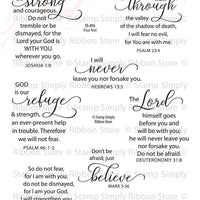 strong
and courageous.
Do not
tremble or
be dismayed, for
the Lord your God is
WITH YOU
wherever you go.
JOSHUA 1:9
through
the valley
of the shadow
of death,
I will fear no evil,
for You are with me.
PSALM 23:4
I will
never
leave you nor forsake you.
HEBREWS 13:5
GOD
is our
refuge
& strength,
an ever-present
help in trouble.
Therefore we
will not fear.
PSALM 46: 1-2
The
Lord
himself goes
before you
and will be with you;
he will never leave you
nor forsake you.
Do not be afraid.
DEUTERONOMY 31:8
Don't be
afraid, just
believe
MARK 5:36
So do not fear,
for I am with you;
Do not be dismayed,
for I am your God.
I will strengthen you
© Stamp Simply
Ribbon Store